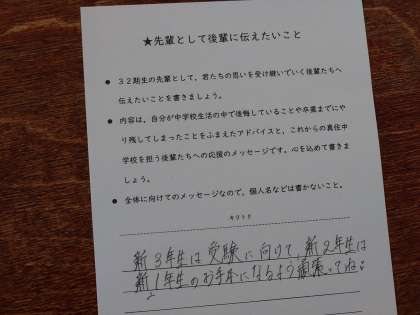 ★先輩として後輩に伝えたいこと
● ３２期生の先輩として、君たちの思いを受け継いでいく後輩たちへ
伝えたいことを書きましょう。
● 内容は、自分が中学校生活の中で後悔していることや卒業までにや
り残してしまったことをふまえたアドバイスと、これからの真住中
学校を担う後輩たちへの応援のメッセージです。心を込めて書きま
しょう。
● 全体に向けてのメッセージなので、個人名などは書かないこと。
キリトリ
新３年生は受験に向けて、新２年生は
新１年生のお手本になるよう頑張ってね